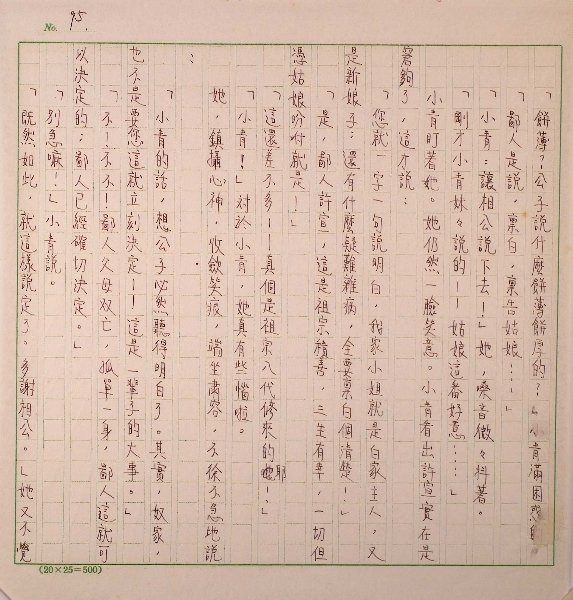 No. 95.
「餅薄？公子說什麼餅薄餅厚的？」小青滿困惑的
「鄙人是說，稟白，稟告姑娘……」
「小青：讓相公說下去！」她，嗓音微々抖著。
「剛才小青妹々說的——姑娘這番好意……」
小青盯著她。她仍然一臉笑意。小青看出許宣實在是
窘夠了，這才說：
「您就一字一句說明白，我家小姐就是白家主人，又
是新娘子；還有什麼疑難雜病，全要稟白個清楚！」
「是，鄙人許宣，這是祖宗積善，三生有幸，一切但
憑姑娘吩咐就是！」
「這還差不多——真個是祖宗八代修來的耶！」
「小青！」對於小青，她真有些惱啦。
她，鎮攝心神，收歛笑痕，端坐肅容，不徐不急地說
：
「小青的話，想公子必然聽得明白了。其實，奴家，
也不是要您這就立刻決定——這是一輩子的大事。」
「不！不不！鄙人父母双亡，孤單一身，鄙人這就可
以決定的；鄙人已經確切決定。」
「別急嘛！」小青說。
「既然如此，就這樣說定了。多謝相公。」她又不覺
(20×25=500)